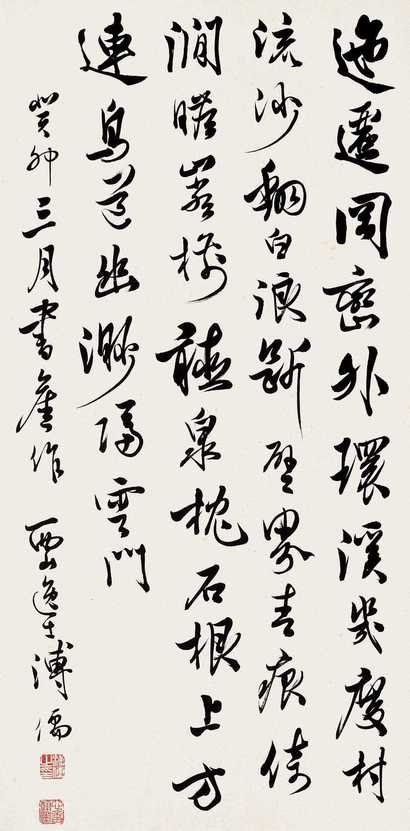 迤邐岡巒外環溪幾度村
流沙翻白浪斷壁界青痕倚
澗瞻巖聽泉枕石根上方
連鳥道幽渺隔雲門
癸卯三月書舊作 西山逸士溥儒